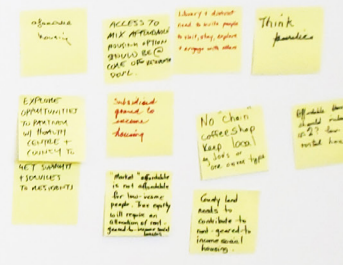 affordable
housing
ACCESS TO
MIX AFFORDABLE
HOUSING OPTION
SHOULD BE @
CORE OF
DEVL.
Library + district
need to invite people
to visit, stay, explore
+ engage with others
Think
EXPLORE
OPPORTUNITIES
TO PARTNER
W/ HEALTH
CENTRE +
COUNTY TO
GET SUPPORT
+ SERVICES
TO RESIDENTS
Subsidized
geared to
income
housing
No Chain
coffee shop
Keep local
one type
Affordable
should
low
Market "affordable"
is not affordable
for low-income
people. True equity
will require an
allocation of rent-
geared-to-income
County land
needs to
contribute to
rent-geared-to-
income social
housing.